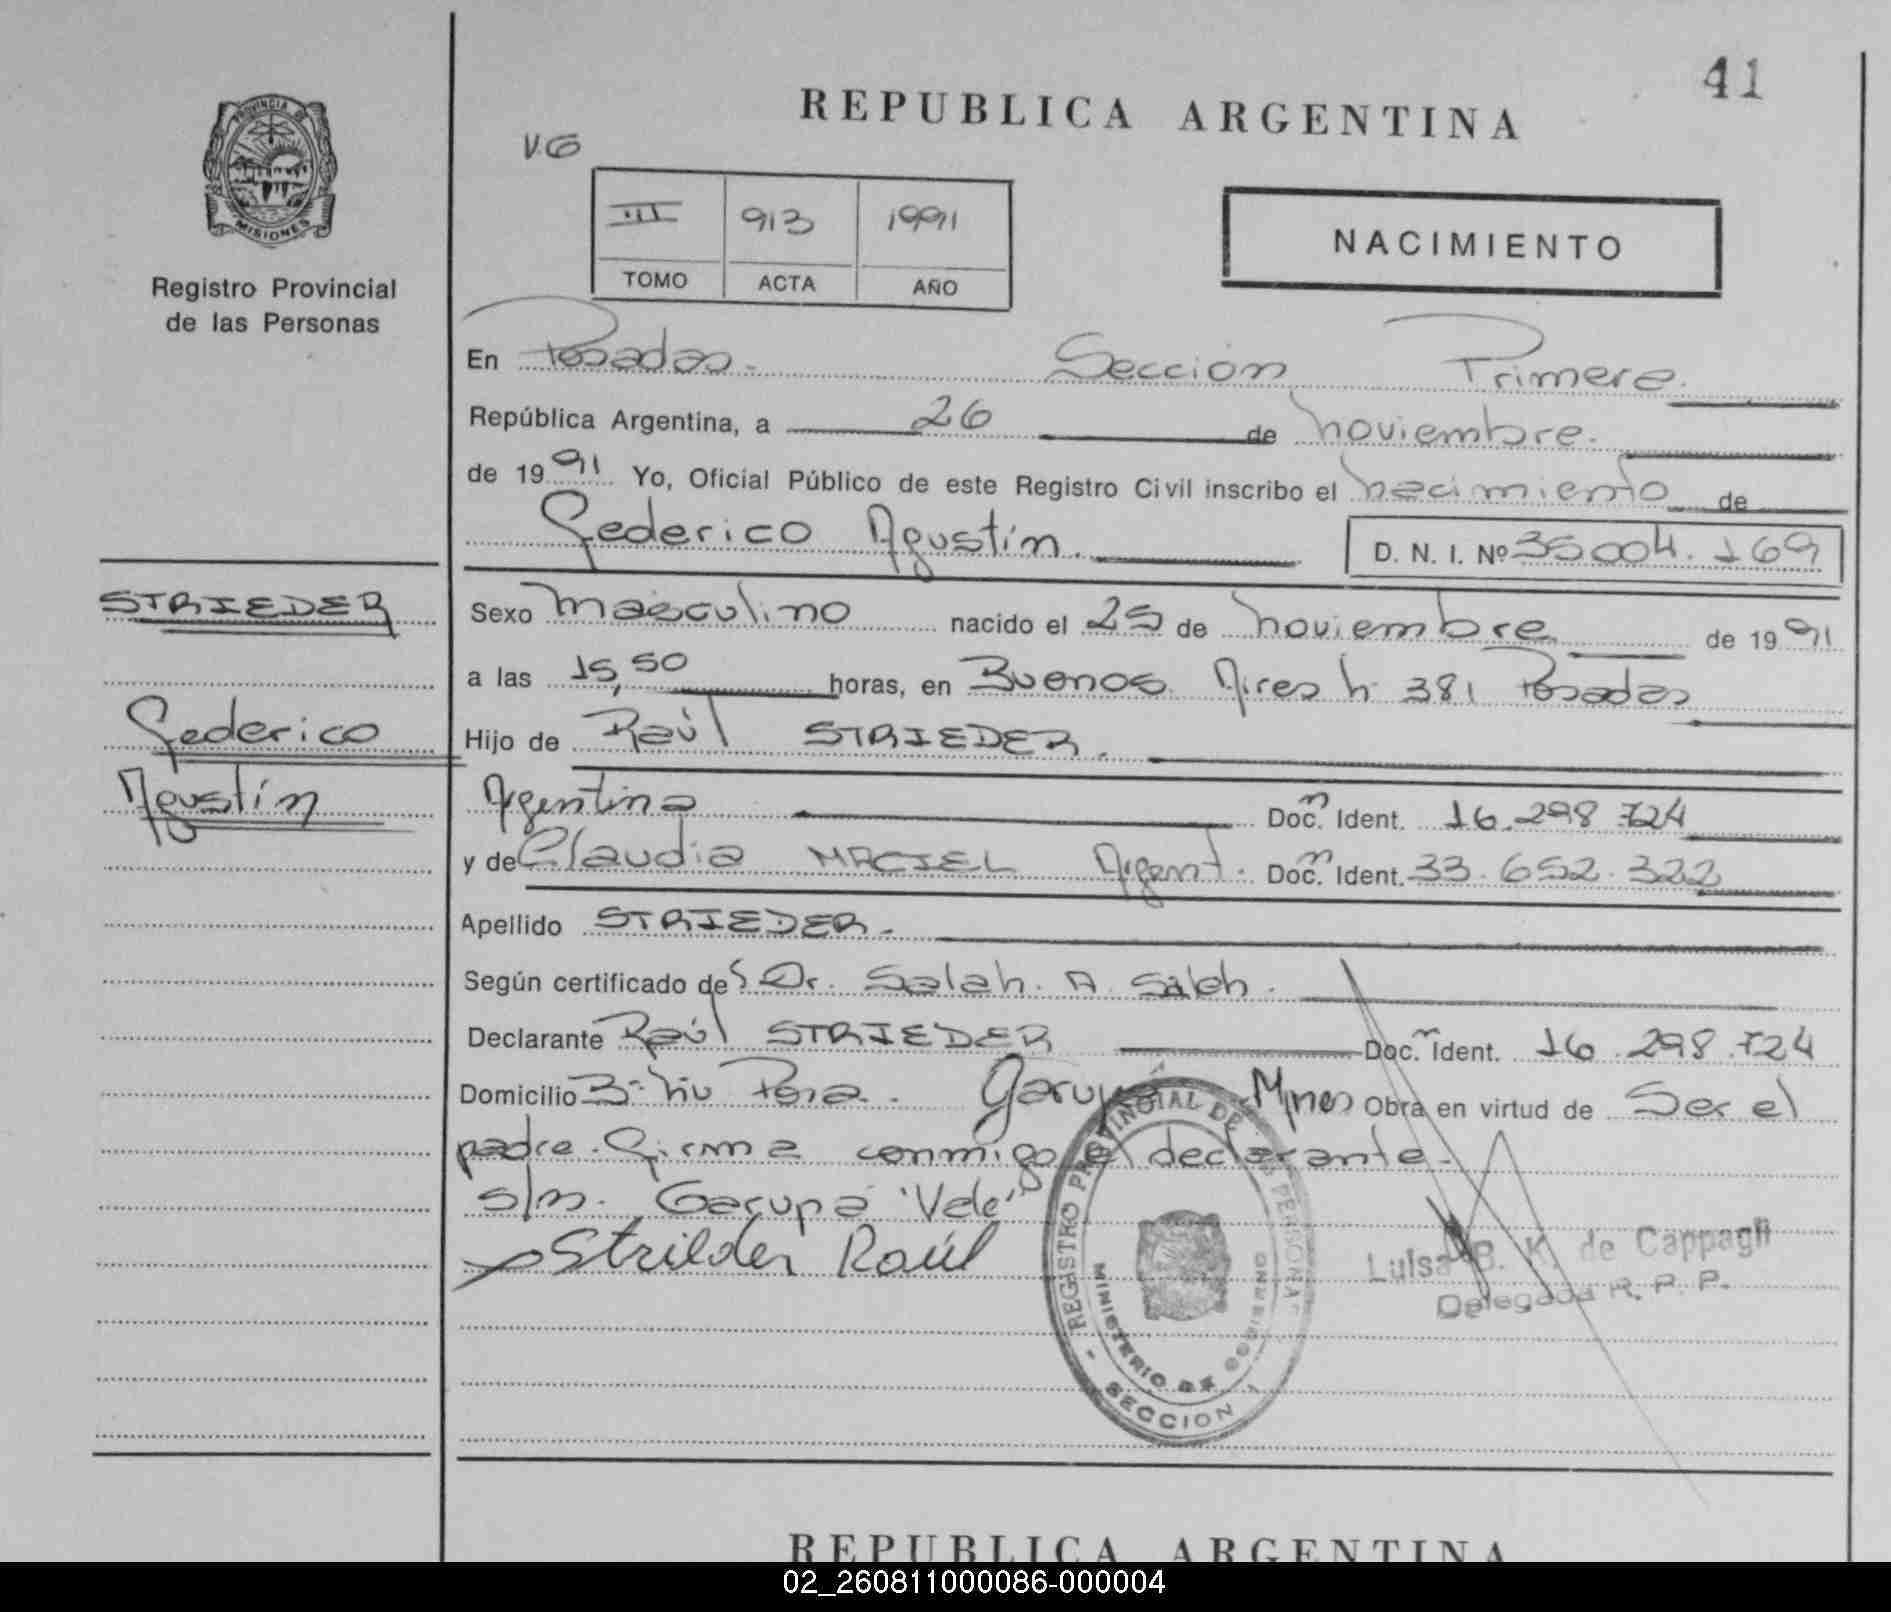 41
REPUBLICA ARGENTINA
V.G
PROVINCIA DE
MISIONES
Registro Provincial
de las Personas
III 913 1991
TOMO ACTA AÑO
NACIMIENTO
En Posadas. Sección Primera.
República Argentina, a 26 de noviembre.
de 1991 Yo, Oficial Público de este Registro Civil inscribo el nacimiento de
Federico Agustín.
D. N. I. Nº 35004.169
STRIEDER
Federico
Agustín
Sexo masculino nacido el 25 de noviembre de 1991
a las 15,50 horas, en Buenos Aires n 381 Posadas
Hijo de Raúl STRIEDER.
Argentina Doc. Ident. 16.298.724
y de Claudia MACIEL Argent. Doc. Ident. 33.652.322
Apellido STRIEDER.
Según certificado de Dr. Salah. A. Saleh.
Declarante Raúl STRIEDER Doc. Ident. 16.298.724
Domicilio Garupá Mnes Obra en virtud de Ser el
padre. Firma conmigo el declarante.
s/n. Garupá "Vale"
Strieder Raúl
REGISTRO PROVINCIAL DE LAS PERSONAS
MINISTERIO DE GOBIERNO
- SECCION 1
Luisa B. K. de Cappagli
Delegada R. P. P.
REPUBLICA ARGENTINA
02_260811000086-000004